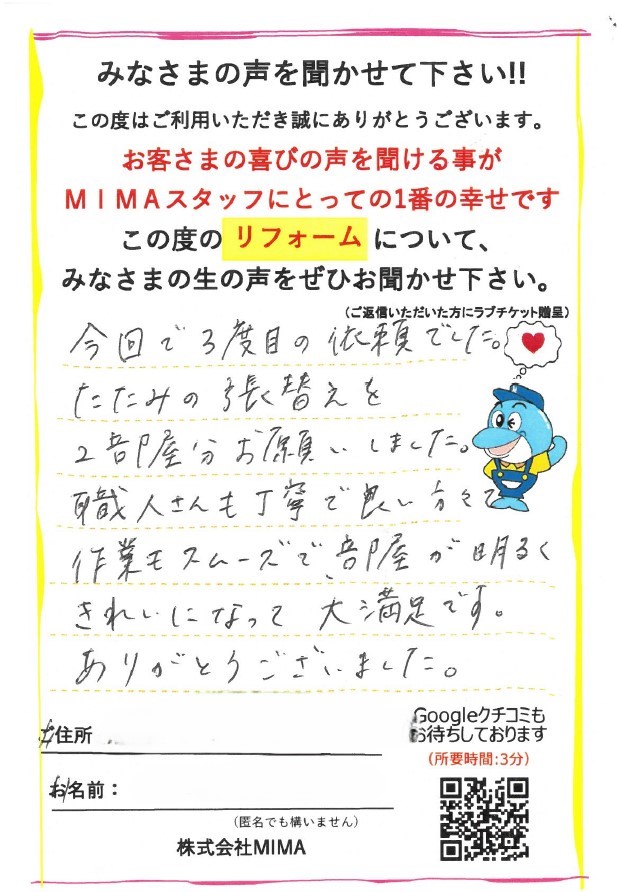 みなさまの声を聞かせて下さい!!
この度はご利用いただき誠にありがとうございます。
お客さまの喜びの声を聞ける事が
MIMAスタッフにとっての1番の幸せです
この度のリフォームについて、
みなさまの生の声をぜひお聞かせ下さい。
(ご返信いただいた方にラブチケット贈呈)
今回で3度目の依頼でした。
たたみの張替えを
2部屋分お願いしました。
職人さんも丁寧で良い方々で
作業もスムーズで、部屋が明るく
きれいになって大満足です。
ありがとうございました。
Googleクチコミも
お待ちしております
(所要時間:3分)
ご住所
お名前:
(匿名でも構いません)
株式会社MIMA